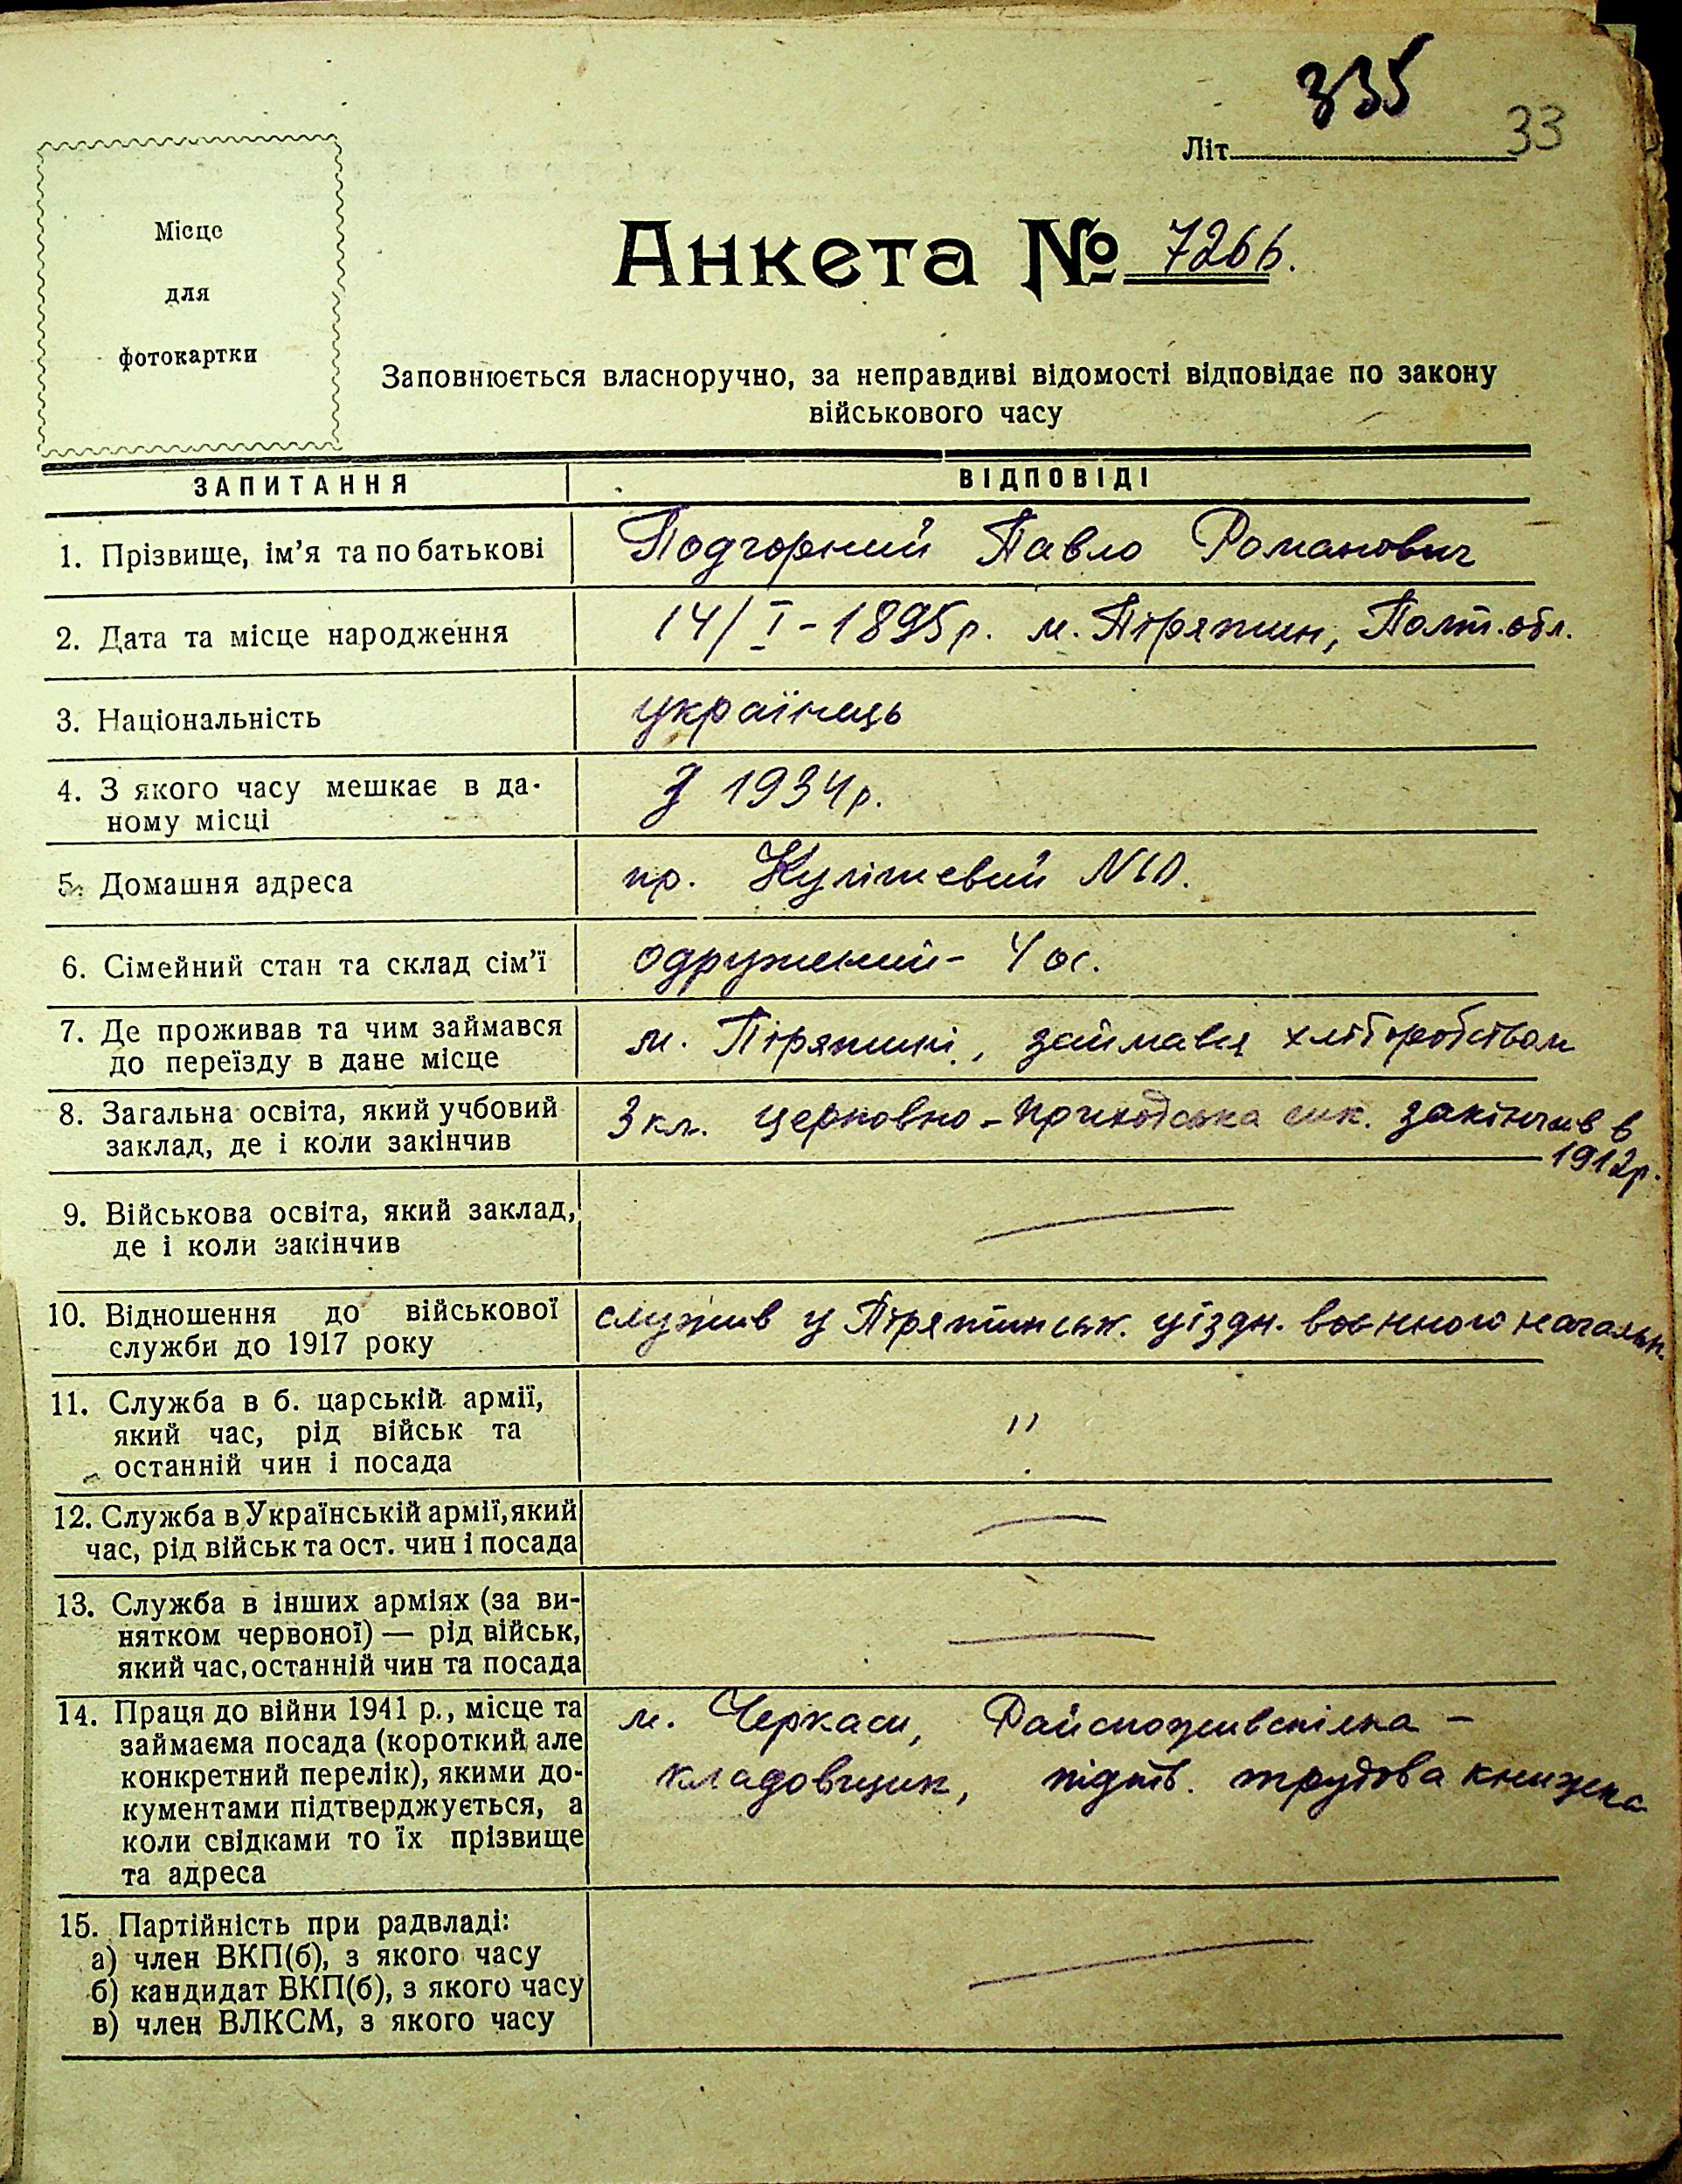 335
Літ. 33
Місце
для
фотокартки
Анкета № 7266.
Заповнюється власноручно, за неправдиві відомості відповідає по закону
військового часу
ЗАПИТАННЯ ВІДПОВІДІ
1. Прізвище, ім’я та по батькові Подгорний Павло Романович
2. Дата та місце народження 14/I-1895р. м. Пірятин, Полт. обл.
3. Національність українець
4. З якого часу мешкає в да-
ному місці З 1934р.
5. Домашня адреса пр.
6. Сімейний стан та склад сім’ї одружений - 4 ос.
7. Де проживав та чим займався м. Пірятині, займався хліборобством
до переїзду в дане місце
8. Загальна освіта, який учбовий 3 кл. церковно-приходська шк. закінчив в
заклад, де і коли закінчив 1912р.
9. Військова освіта, який заклад,
де і коли закінчив —
10. Відношення до військової служив у Пірятинськ. уїздн. воєнного начальн.
служби до 1917 року
11. Служба в б. царській армії,
який час, рід військ та "
останній чин і посада
12. Служба в Українській армії, який —
час, рід військ та ост. чин і посада
13. Служба в інших арміях (за ви-
нятком червоної) — рід військ, —
який час, останній чин та посада
14. Праця до війни 1941 р., місце та м. Черкаси, Райспоживспілка -
займаєма посада (короткий але
конкретний перелік), якими до- кладовщик, підтв. трудова книжка
кументами підтверджується, а
коли свідками то їх прізвище
та адреса
15. Партійність при радвладі:
а) член ВКП(б), з якого часу —
б) кандидат ВКП(б), з якого часу
в) член ВЛКСМ, з якого часу